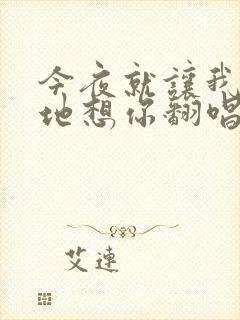 今夜就讓我
地想你翻唱
艾連